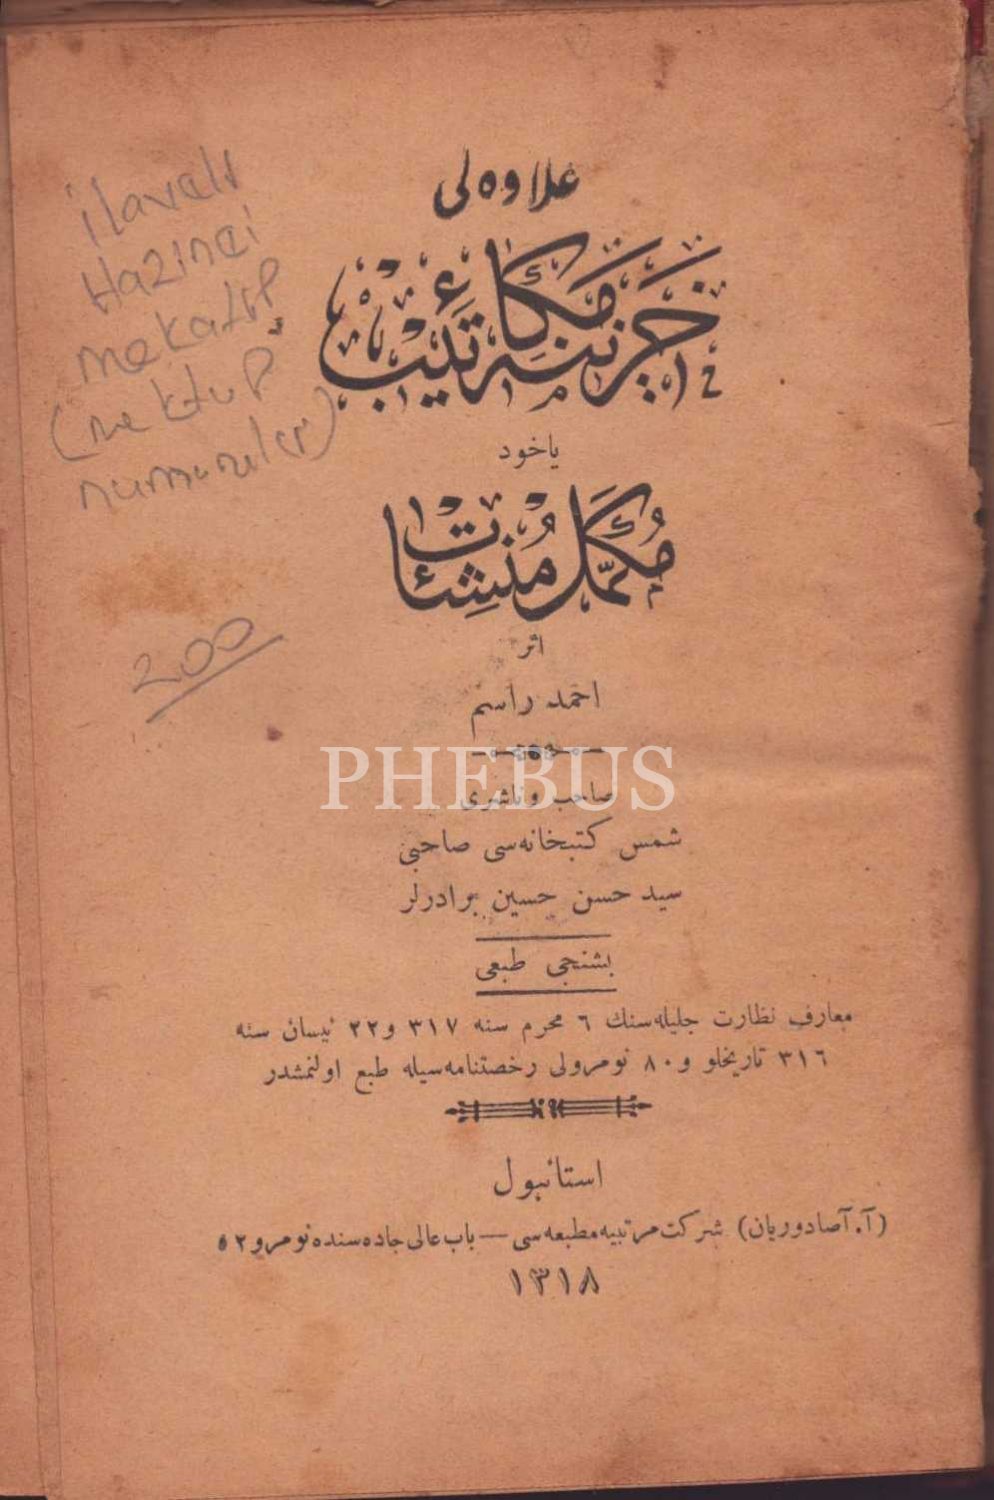 علاوه لی
خزینهٔ مکاتیب
یاخود
مُکمَّل مُنشِئات
اثر
احمد راسم
صاحب و ناشری
شمس کتبخانه‌سی صاحبی
سید حسن حسین برادرلر
بشنجی طبعی
معارف نظارت جلیله‌سنك ٦ محرم سنه ٣١٧ و ٢٢ نیسان سنه
٣١٦ تاریخلو و ٨٠ نومرولی رخصتنامه‌سیله طبع اولنمشدر
استانبول
(آ. آصادوریان) شرکت مرتبیه مطبعه‌سی — باب عالی جاده‌سنده نومرو ٥٢
١٣١٨
ilaveli
Hazinei
mekatip
(mektup
numuneler)
200
PHEBUS